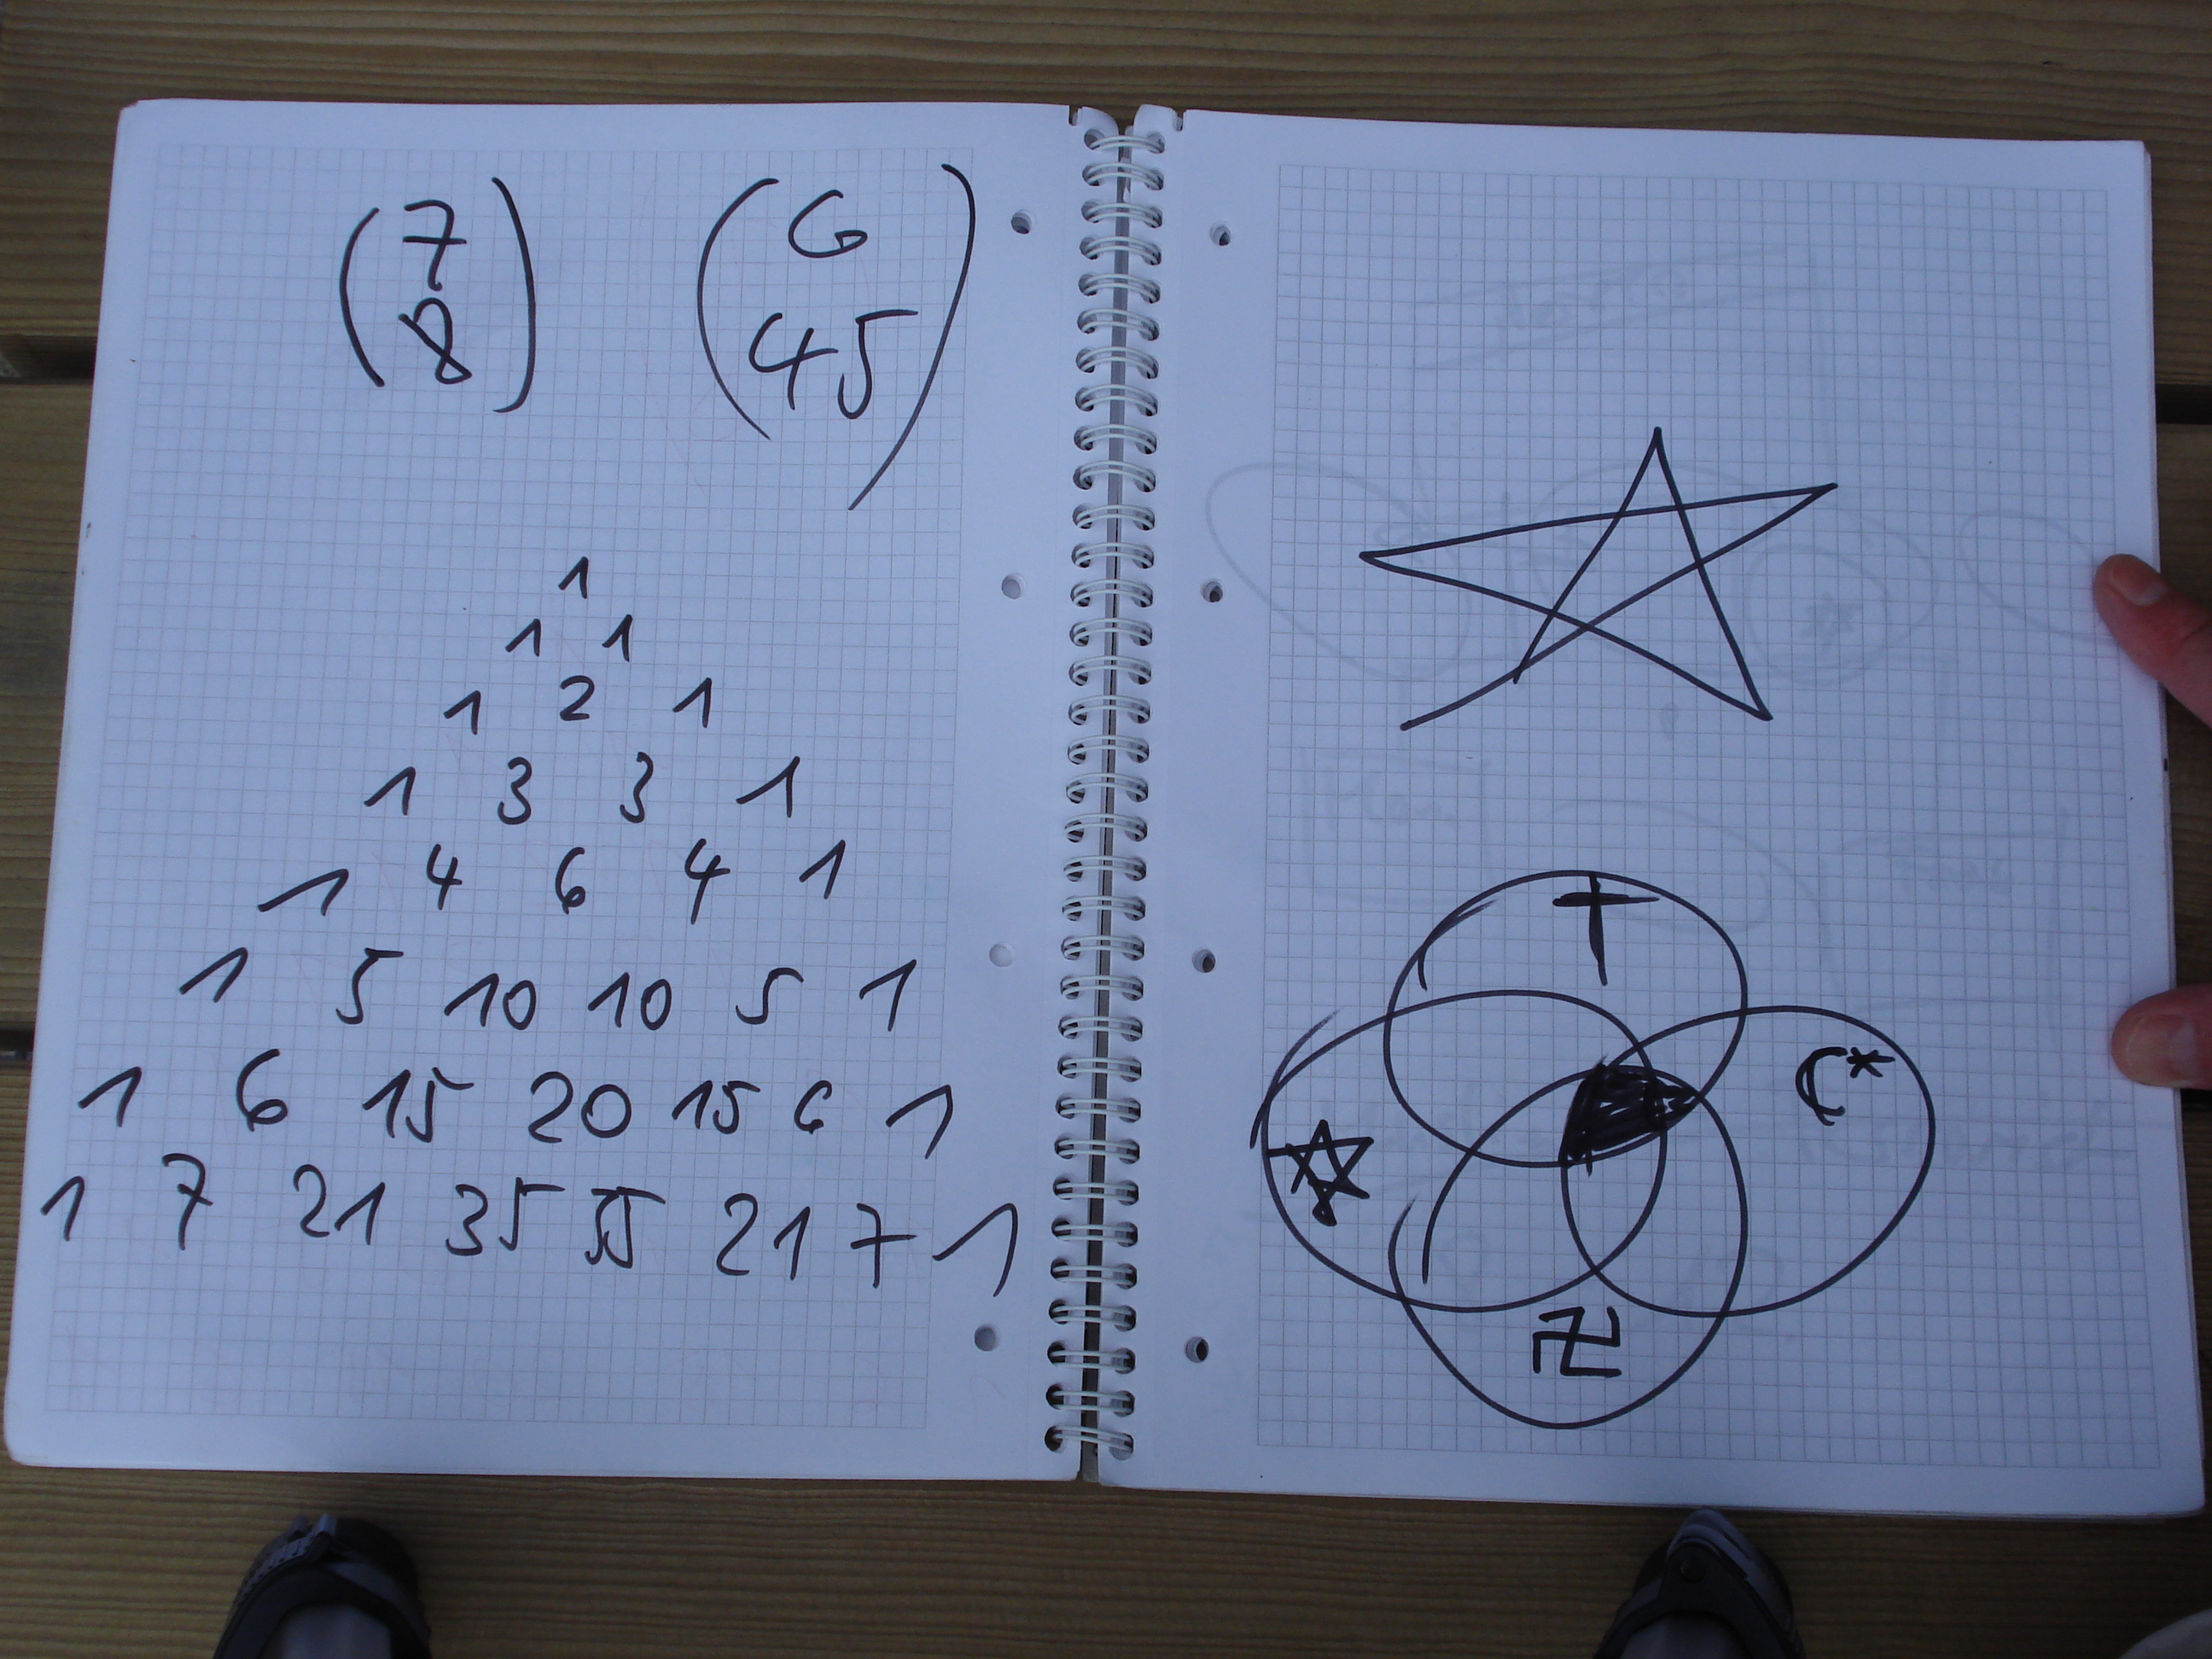 ( 7 ) ( 6 )
( 8 ) ( 45 )
1
1 1
1 2 1
1 3 3 1
1 4 6 4 1
1 5 10 10 5 1
1 6 15 20 15 6 1
1 7 21 35 35 21 7 1